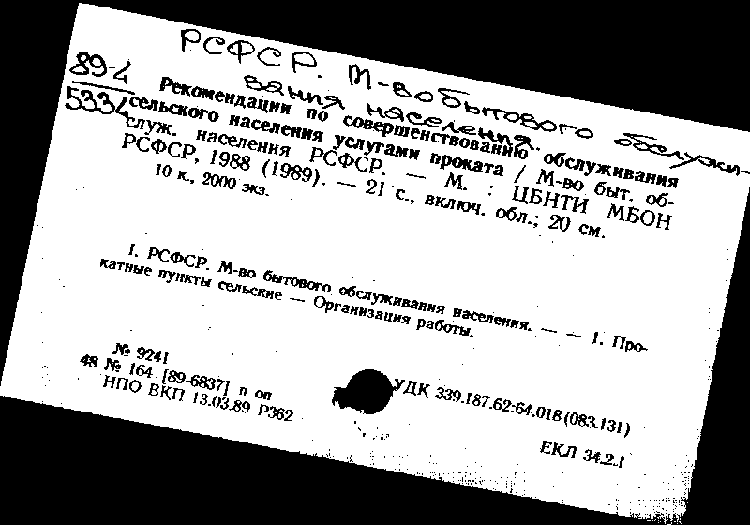 РСФСР. М-во бытового обслужи-
вания населения.
89-4
5334
Рекомендации по совершенствованию обслуживания
сельского населения услугами проката / М-во быт. об-
служ. населения РСФСР. — М. : ЦБНТИ МБОН
РСФСР, 1988 (1989). — 21 с., включ. обл.; 20 см.
10 к., 2000 экз.
1. РСФСР. М-во бытового обслуживания населения. — — 1. Про-
катные пункты сельские — Организация работы.
№ 9241
48 № 164 [89-6837] п оп
НПО ВКП 13.03.89 Р362
УДК 339.187.62:64.018(083.131)
ЕКЛ 34.2.1